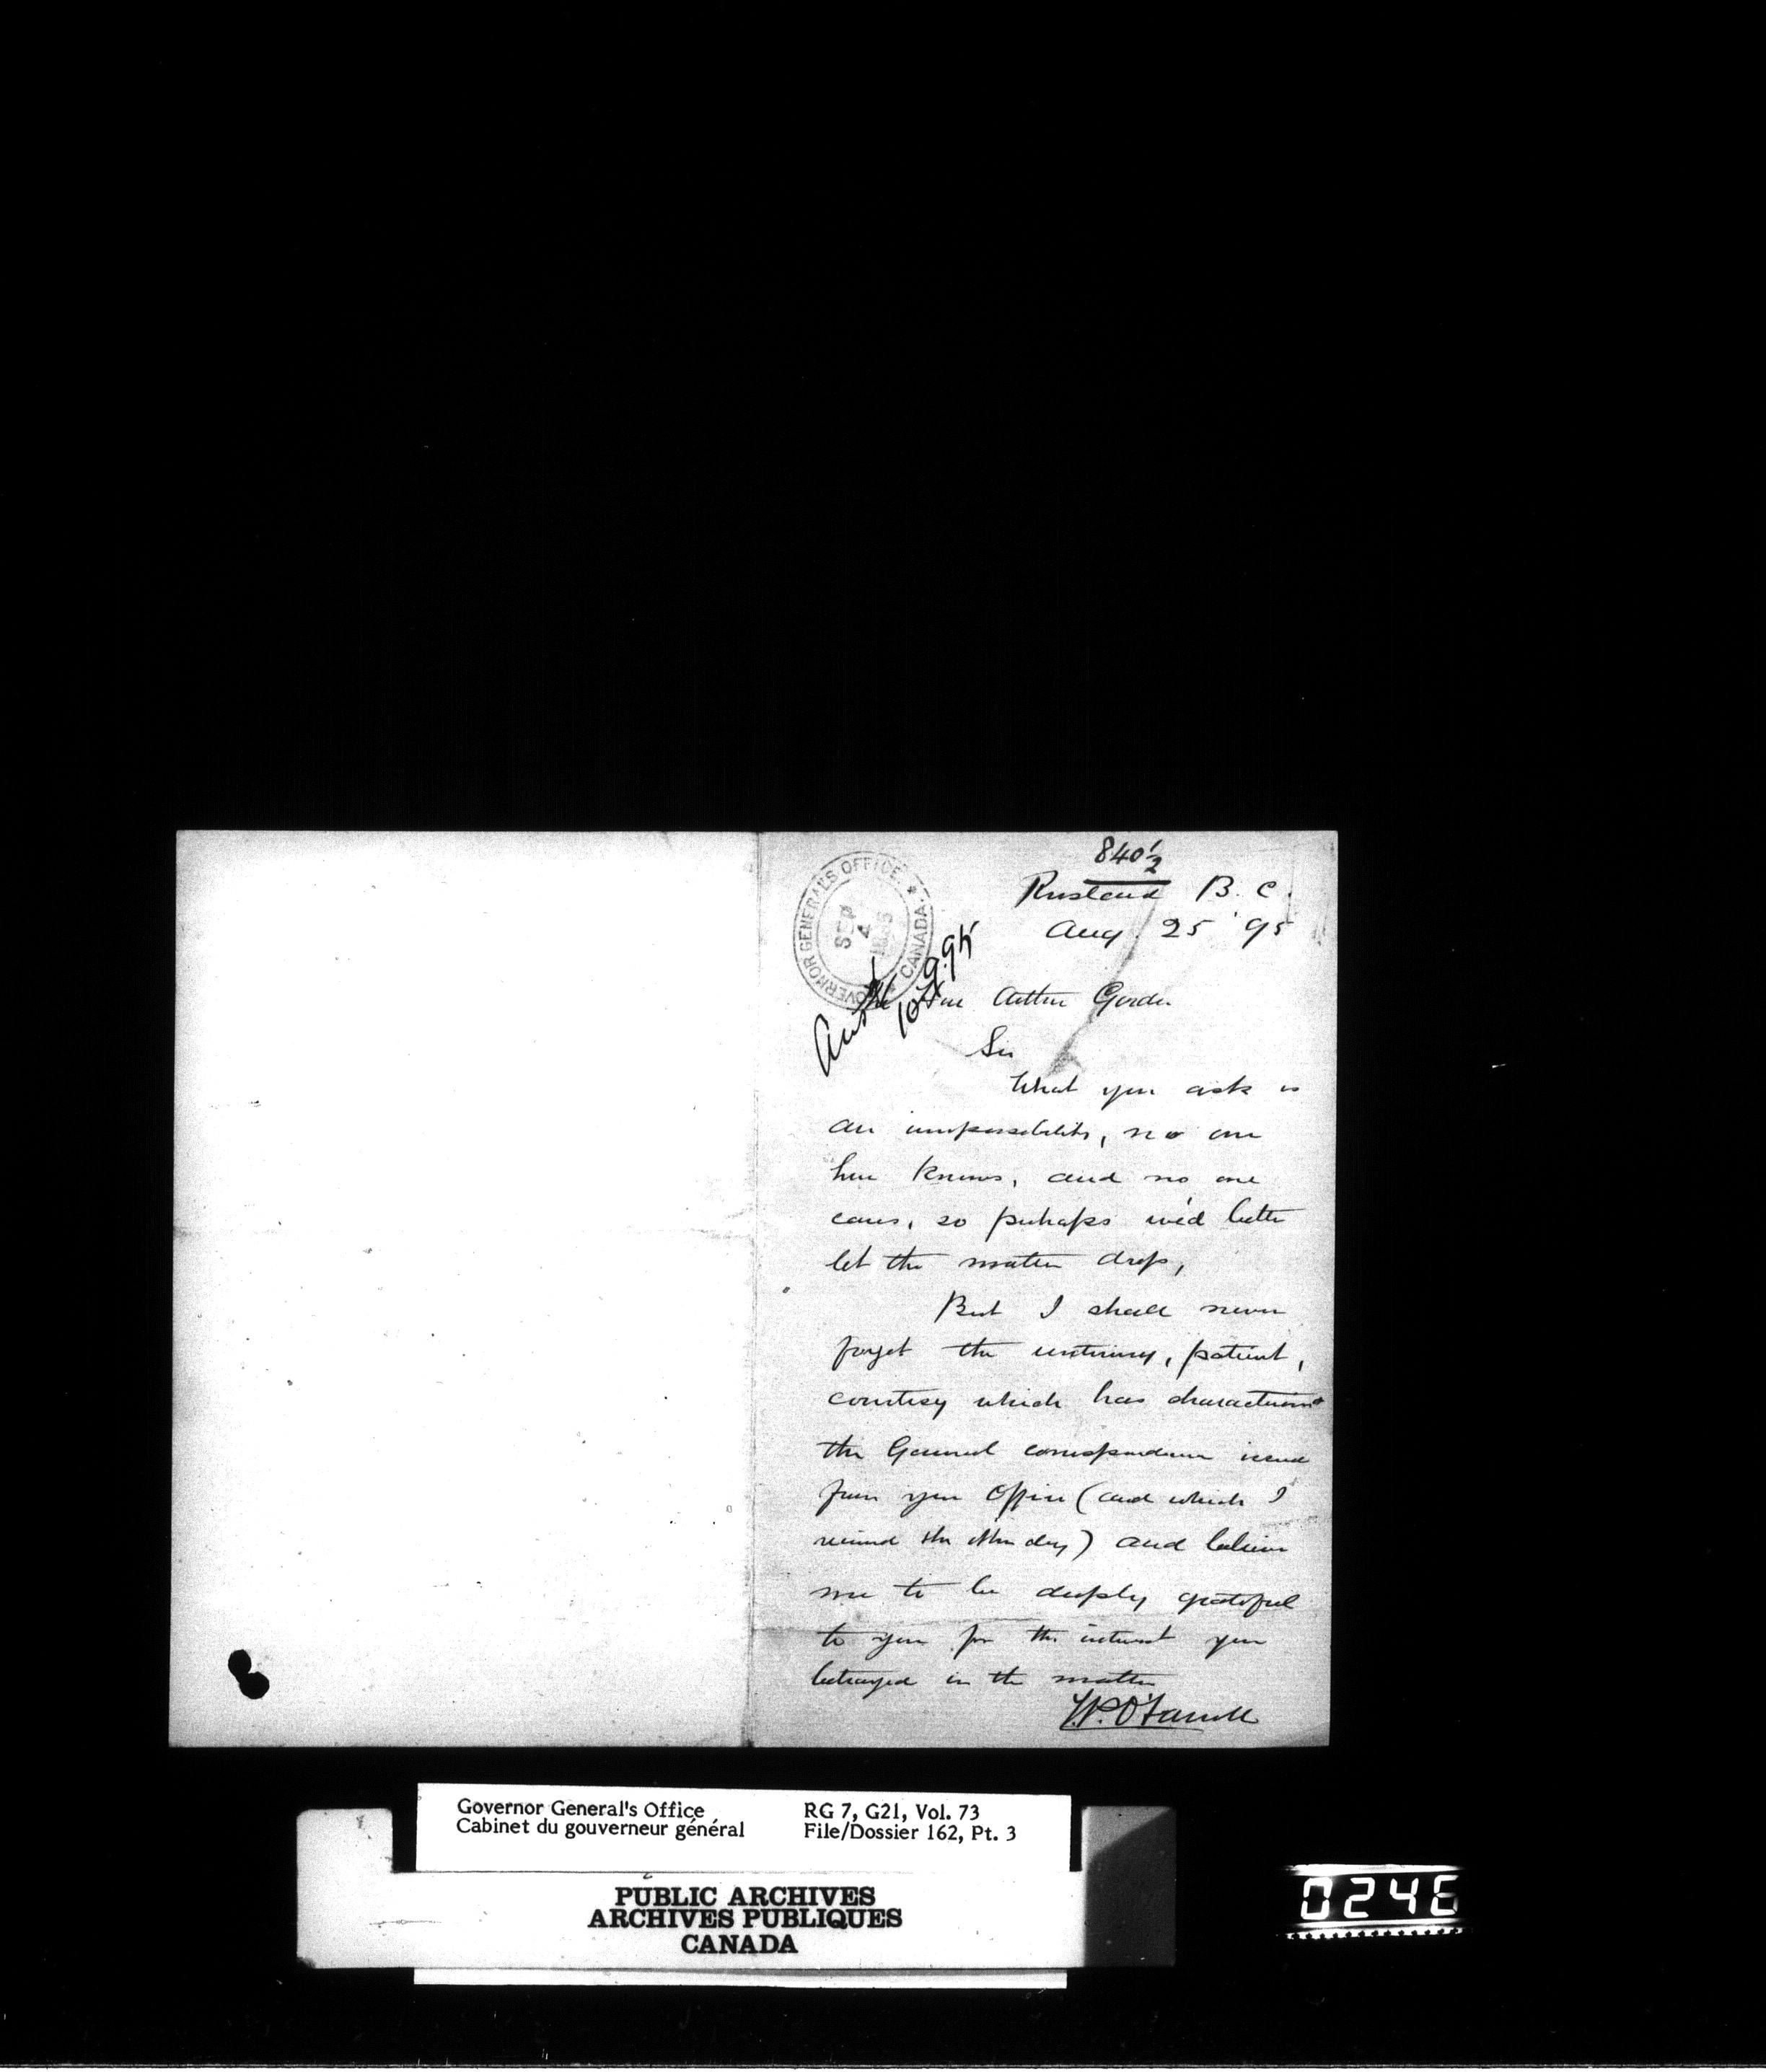 840½
Rossland B. C.
Aug 25 '95
GOVERNOR GENERAL'S OFFICE
* CANADA. *
SEP
4
1895
Ansd
10.9.95
The Hon Arthur Gordon
Sir
What you ask is
an impossibility, no one
here knows, and no one
cares, so perhaps we'd better
let the matter drop,
But I shall never
forget the untiring, patient,
courtesy which has characterized
the General correspondence issued
from your Office (and which I
received the other day) and believe
me to be deeply grateful
to you for the interest you
betrayed in the matter
O'Farrell
Governor General's Office
Cabinet du gouverneur général
RG 7, G21, Vol. 73
File/Dossier 162, Pt. 3
PUBLIC ARCHIVES
ARCHIVES PUBLIQUES
CANADA
0246